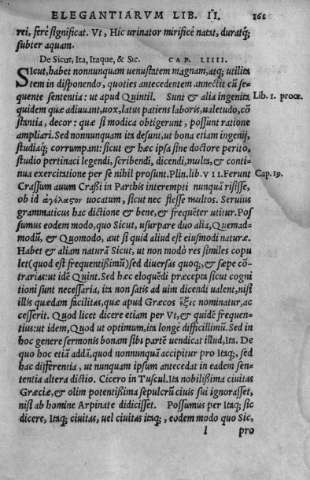 ELEGANTIARVM LIB. II. 161
rei, ferè significat. Vt, Hic urinator mirificè natat, duratq́;
subter aquam.
De Sicut, Ita, Itaque, & Sic. CAP. LIIII.
Sicut, habet nonnunquam uenustatem magnam, atq; utilita
tem in disponendo, quoties antecedentem annectit cũ se-
quente sententia: ut apud Quintil. Sunt & alia ingenita Lib. 1. proœ.
quidem quæ adiuuant, uox, latus patiens laboris, ualetudo, cõ
stantia, decor: quæ si modica obtigerunt, possunt ratione
ampliari. Sed nonnunquam ita desunt, ut bona etiam ingenij,
studijq; corrumpant: sicut & hæc ipsa sine doctore perito,
studio pertinaci legendi, scribendi, dicendi, multa, & conti-
nua exercitatione per se nihil prosunt. Plin. lib. VII. Ferunt Cap. 19.
Crassum auum Crassi in Parthis interempti nunquã risisse,
ob id ἀγέλαστον uocatum, sicut nec flesse multos. Seruius
grammaticus hac dictione & bene, & frequẽter utitur. Pos
sumus eodem modo, quo Sicut, usurpare duo alia, Quemad-
modũ, & Quomodo, aut si quid aliud est eiusmodi naturæ.
Habet & aliam naturã Sicut, ut non modò res similes copu
let (quod est frequentissimũ) sed diuersas quoq;, & sæpe cõ-
trarias: ut idẽ Quint. Sed hæc eloquẽdi præcepta sicut cogni
tioni sunt necessaria, ita non satis ad uim dicendi ualent, nisi
illis quædam facilitas, quæ apud Græcos ἕξις nominatur, ac
cesserit. Quod licet dicere etiam per Vt, & quidẽ frequen-
tius: ut idem, Quod ut optimum, ita longè difficillimũ. Sed in
hoc genere sermonis bonam sibi partẽ uendicat illud, Ita. De
quo hoc etiã addã, quod nonnunquã accipitur pro Itaq;, sed
hac differentia, ut nunquam ipsum antecedat in eadem sen-
tentia altera dictio. Cicero in Tuscul. Ita nobilissima ciuitas
Græciæ, & olim potentissima sepulcrũ ciuis sui ignorasset,
nisi ab homine Arpinate didicisset. Possumus per Itaq; sic
dicere, Itaq; ciuitas, uel ciuitas itaq;, eodem modo quo Sic,
l pro